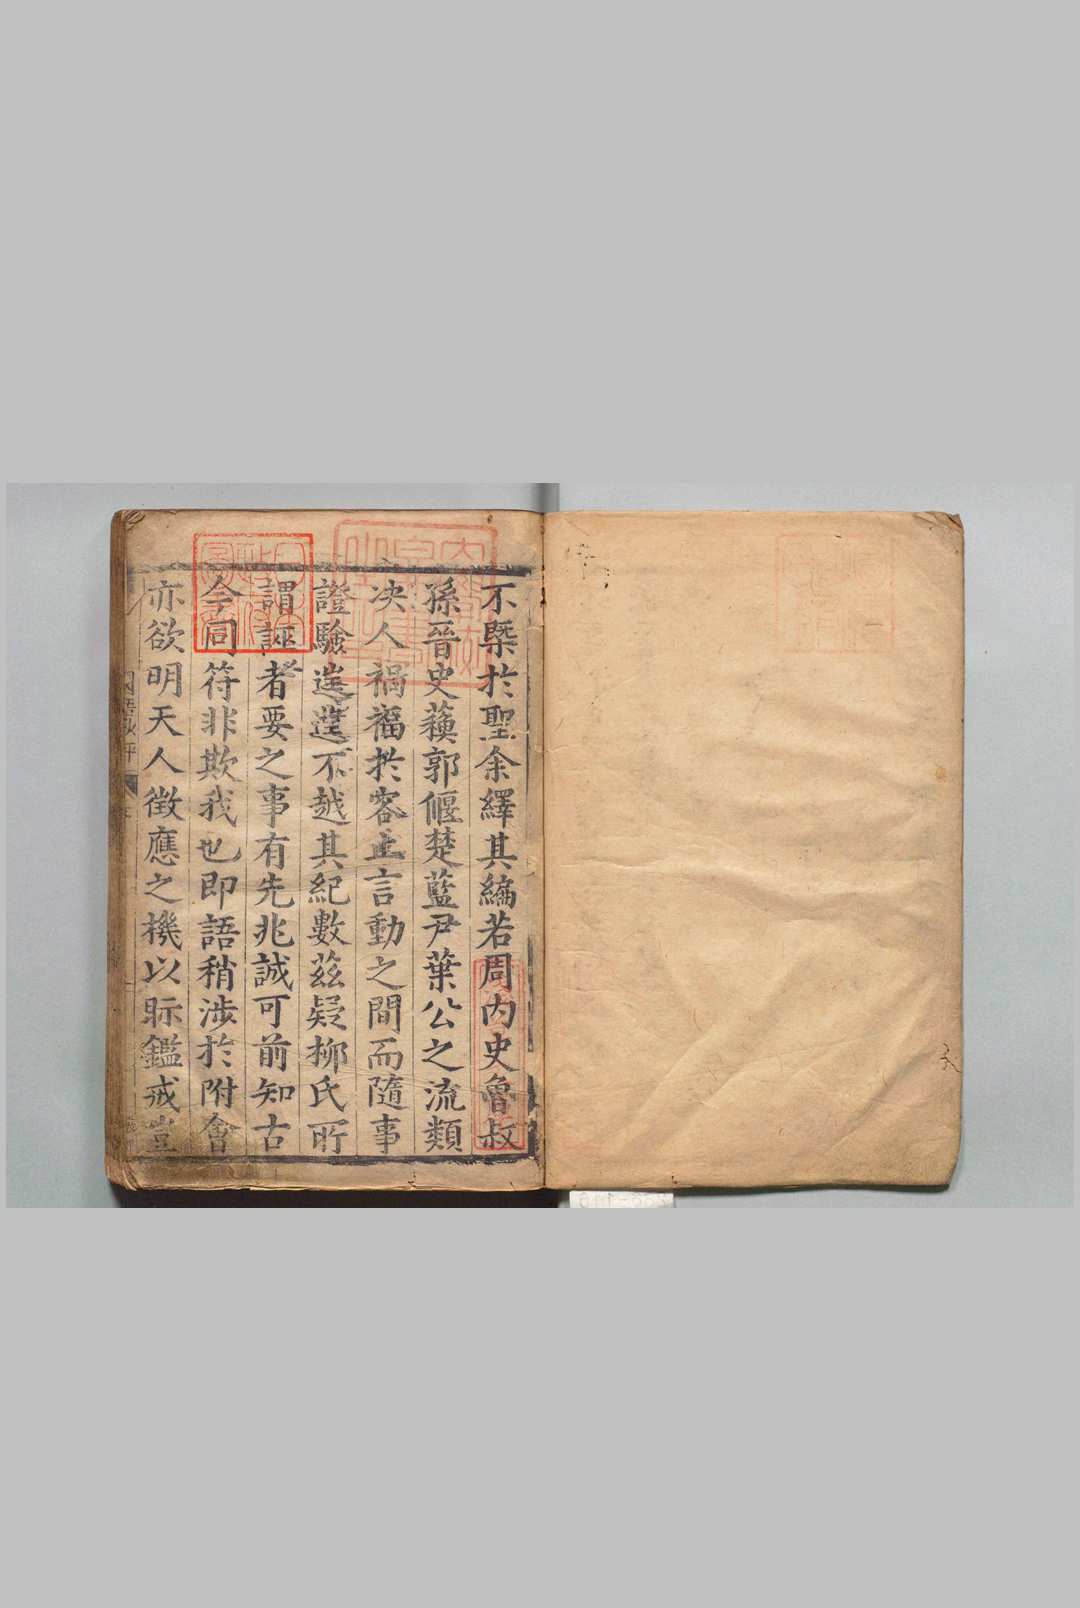 不槩於聖余繹其編若周内史魯叔
孫晉史蘓郭偃楚藍尹葉公之流類
决人禍福扵容止言動之間而隨事
證驗遑遑不越其紀數兹疑栁氏所
謂誣者要之事有先兆誠可前知古
今同符非欺我也即語稍涉於附會
亦欲明天人徵應之機以眎鑑戒豈
國語鈔評